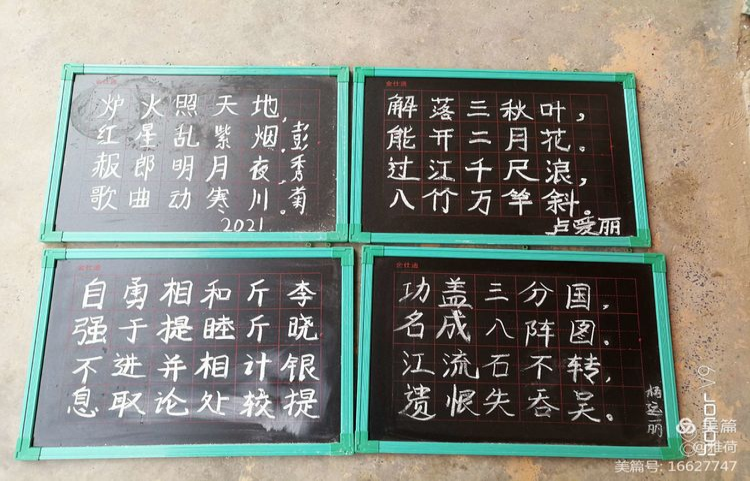 炉火照天地,
红星乱紫烟.
赧郎明月夜,
歌曲动寒川.
彭秀菊
2021
解落三秋叶,
能开二月花。
过江千尺浪,
入竹万竿斜。
卢爱丽
自勇相和斤李
强于提睦斤晓
不进并相计银
息取论处较提
功盖三分国,
名成八阵图。
江流石不转,
遗恨失吞吴。
HONOR V9
美篇
@雅荷
美篇号: 16627747